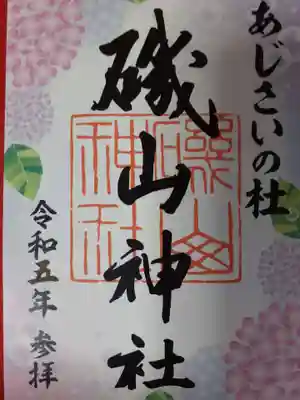 あじさいの杜
磯山神社
磯山
神社
令和五年 参拝